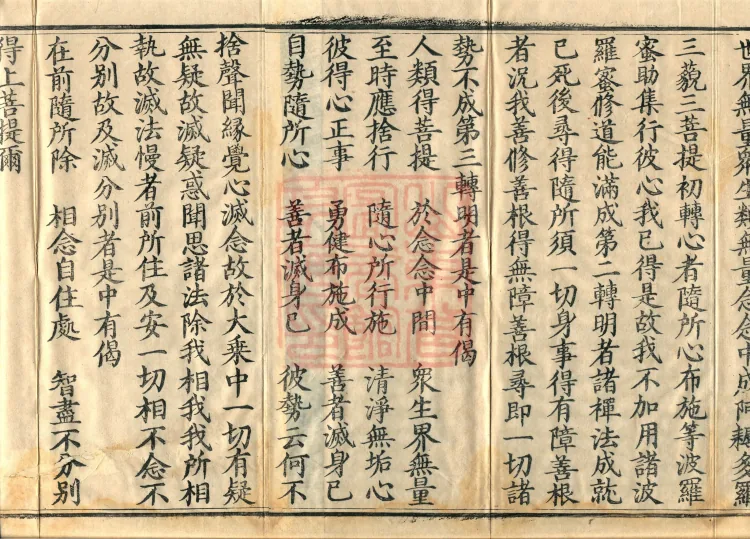 世界無量衆生類無量念念中成阿耨多羅
三藐三菩提初轉心者隨所心布施等波羅
蜜助集行彼心我已得是故我不加用諸波
羅蜜修道能滿成第二轉明者諸禪法成就
已死後尋得隨所須一切身事得有障善根
者況我善修善根得無障善根尋即一切諸
勢不成第三轉明者是中有偈
人類得菩提 於念念中間 衆生界無量
至時應捨行 隨心所行施 清淨無垢心
彼得心正事 勇健布施成 善者滅身已
自勢隨所心 善者滅身已 彼勢云何不
捨聲聞緣覺心滅念故於大乘中一切有疑
無疑故滅疑惑聞思諸法除我相我我所相
執故滅法慢者前所住及安一切相不念不
分別故及滅分別者是中有偈
在前隨所除 相念自住處 智盡不分別
得上菩提爾